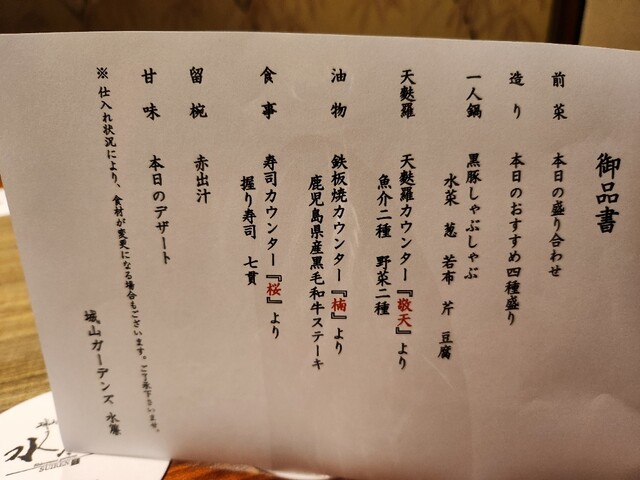 御品書
前菜 本日の盛り合わせ
造り 本日のおすすめ四種盛り
一人鍋 黒豚しゃぶしゃぶ
水菜 葱 若布 芹 豆腐
天麩羅 天麩羅カウンター『敬天』より
魚介二種 野菜二種
油物 鉄板焼カウンター『楠』より
鹿児島県産黒毛和牛ステーキ
食事 寿司カウンター『桜』より
握り寿司 七貫
留椀 赤出汁
甘味 本日のデザート
※仕入れ状況により、食材が変更になる場合もございます。ご了承下さいませ。
城山ガーデンズ 水簾
水
SUIREN